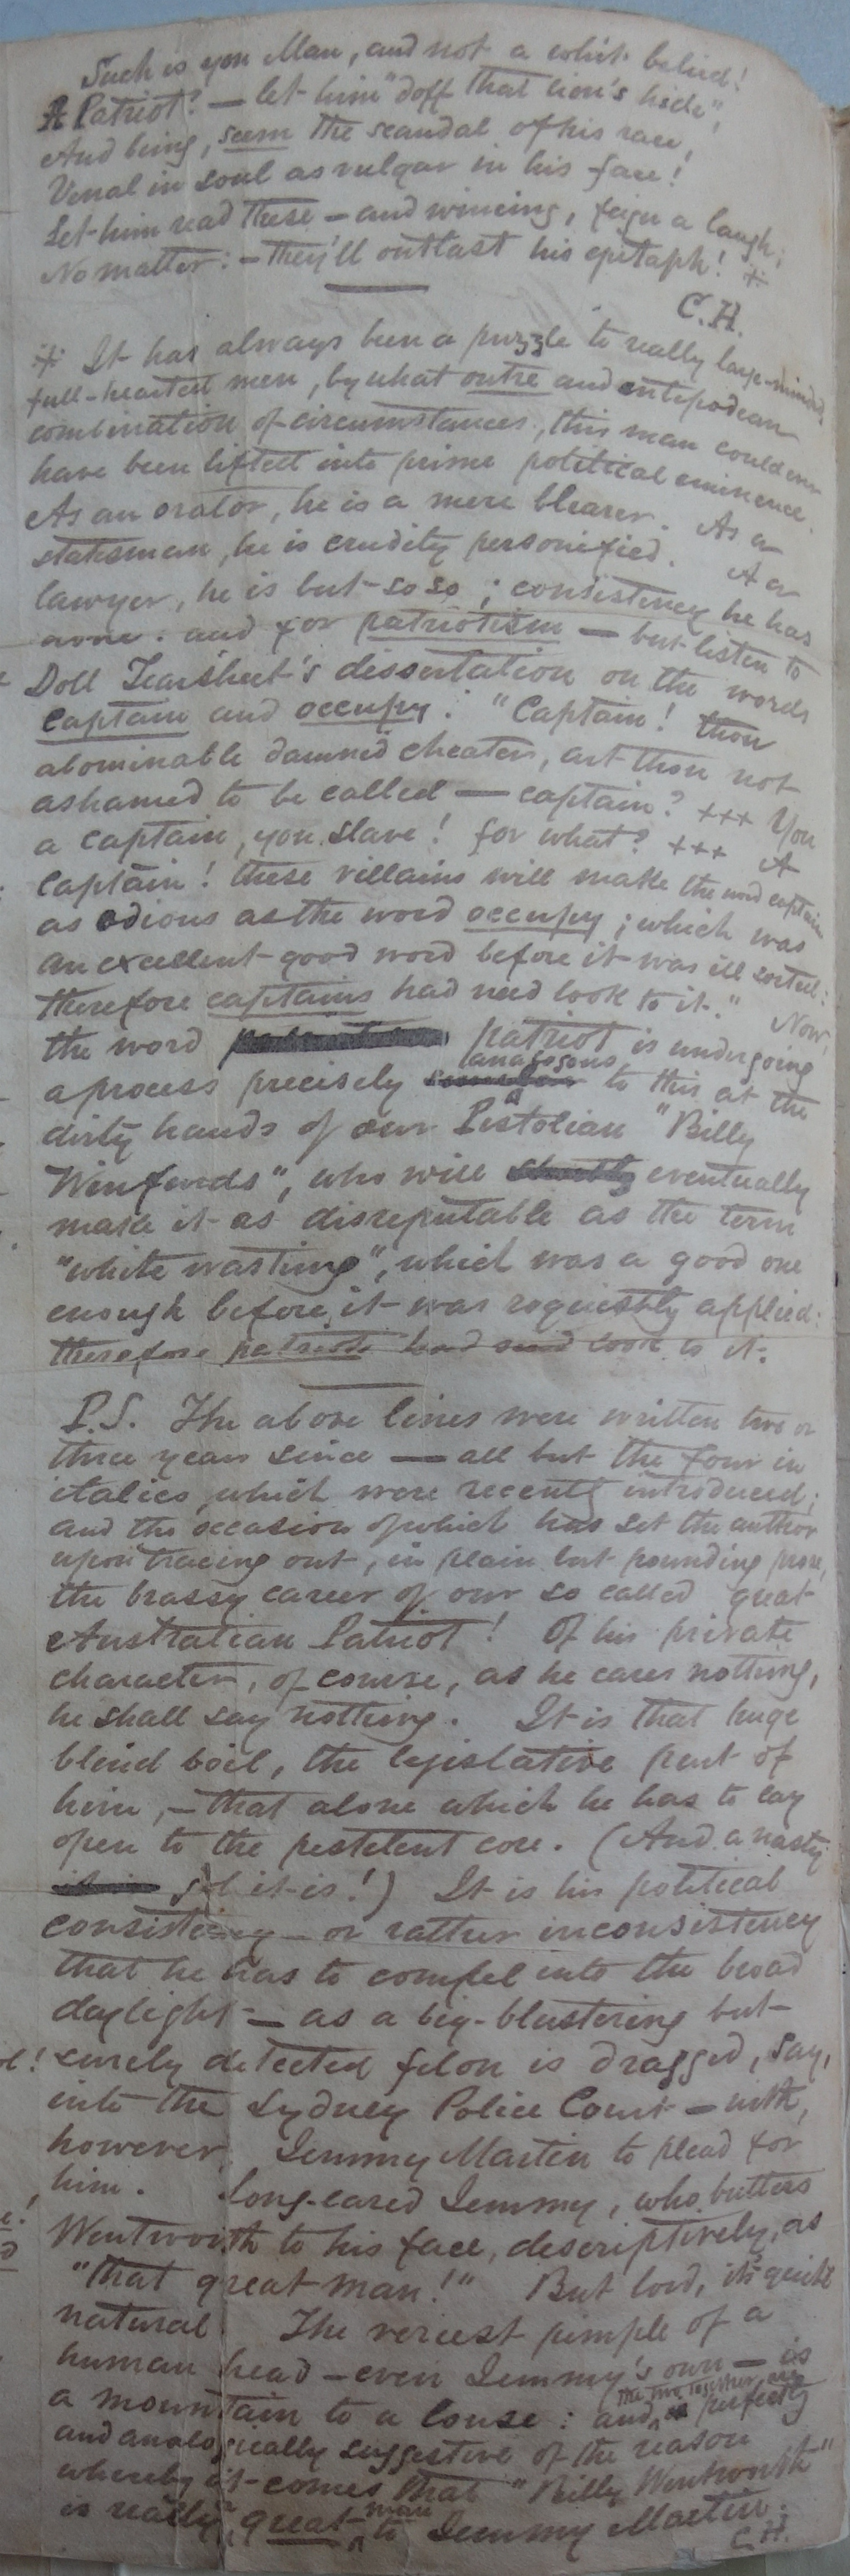 Such is you Man, and not a whit belied!
A Patriot? — let him "doff that lion's hide",
And being, seem the scandal of his race,
Venal in soul as vulgar in his face!
Let him read these — and wincing, feign a laugh;
No matter: — they'll outlast his epitaph! *
C.H.
* It has always been a puzzle to really large-minded
full-hearted men, by what outre and antipodean
combination of circumstances, this man could ever
have been lifted into prime political eminence.
As an orator, he is a mere blearer. As a
statesman, he is crudity personified. As a
lawyer, he is but so so; consistency he has
none: and for patriotism — but listen to
Doll Tearsheet's dissertation on the words
captain and occupy: "Captain! thou
abominable damned cheater, art thou not
ashamed to be called — captain? +++ You
a captain, you slave! for what? +++ A
Captain! these villains will make the word captain
as odious as the word occupy; which was
an excellent good word before it was ill sorted:
therefore captains had need look to it." Now
the word patriot is undergoing
a process precisely analogous to this at the
dirty hands of our Pistolian "Billy
Winfords", who will eventually
make it as disreputable as the term
"white washing", which was a good one
enough before it was roguishly applied:
therefore patriots had need look to it.
P.S. The above lines were written two or
three years since — all but the four in
italics, which were recently introduced;
and the occasion of which has set the author
upon tracing out, in plain but pounding prose,
the brassy career of our so called great
Australian Patriot! Of his private
character, of course, as he cares nothing,
he shall say nothing. It is that huge
blind boil, the legislative part of
him, — that alone which he has to lay
open to the pestilent core. (And a nasty
it is!) It is his political
consistency — or rather inconsistency
that he has to compel into the broad
daylight — as a big-blustering but
surely detected felon is dragged, say,
into the Sydney Police Court — with,
however, Jemmy Martin to plead for
him. Long-eared Jemmy, who butters
Wentworth to his face, descriptively, as
"that great man!" But lord, it's quite
natural. The veriest pimple of a
human head — even Jemmy's own — is
a mountain to a louse: and the two together are perfectly
and analogically suggestive of the reason
whereby it comes that "Billy Wentworth"
is really a great man to Jemmy Martin.
C.H.